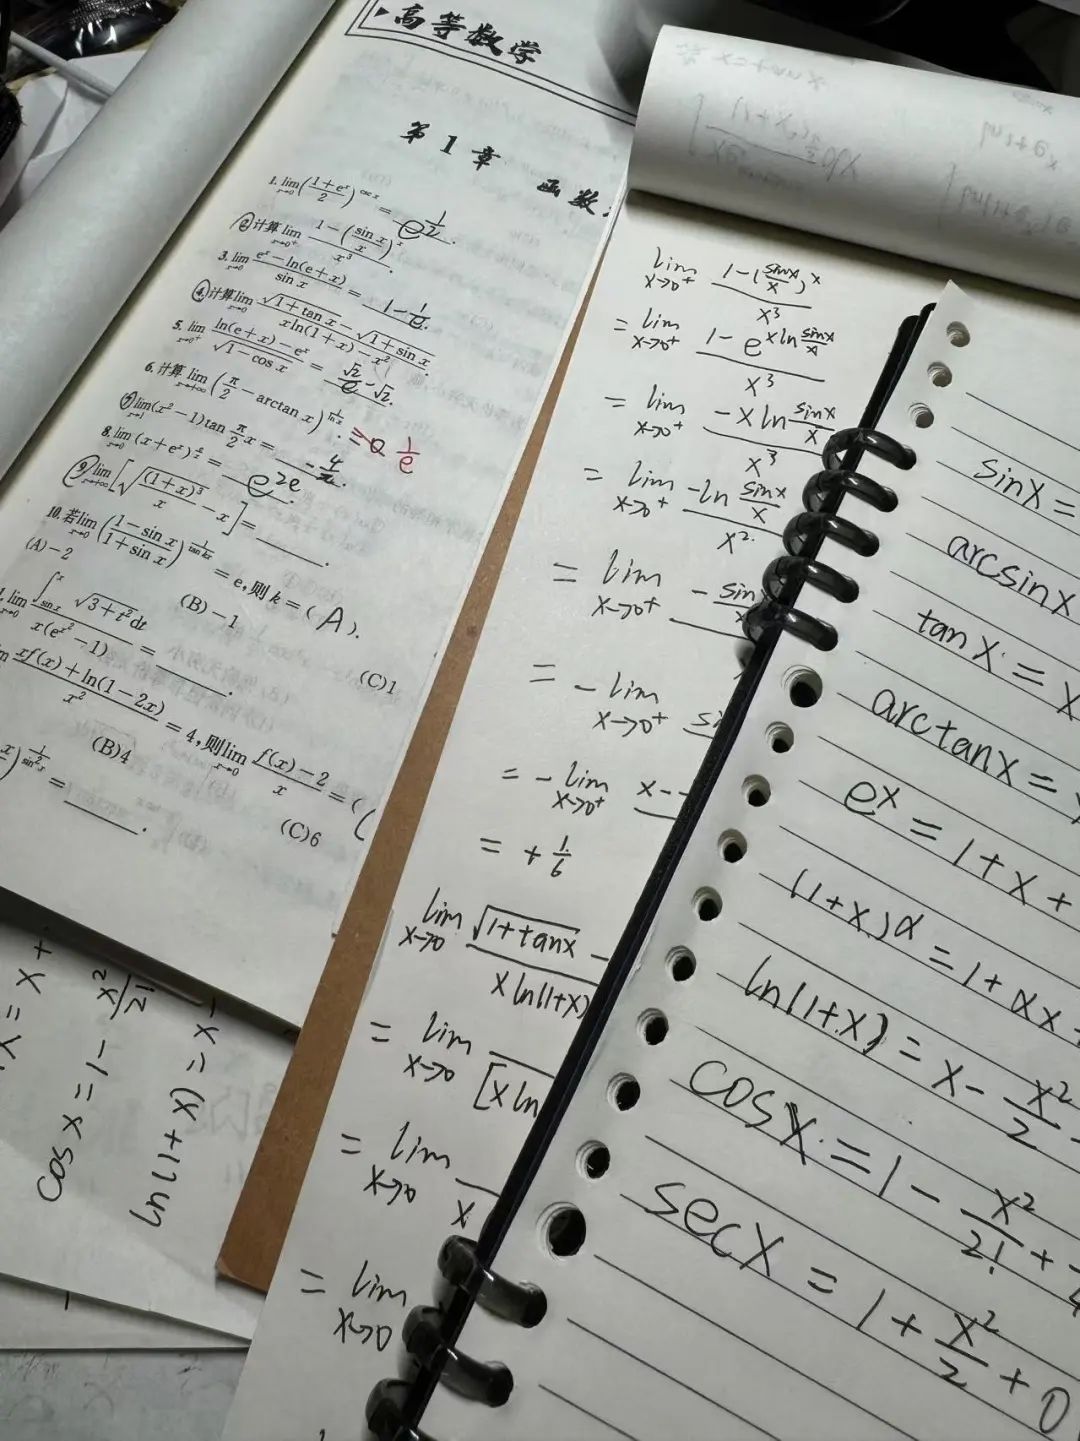 高等数学
第1章 函数
1. lim x→0 ((1+eˣ)/2)^(cot x) = e^(1/2).
② 计算 lim x→0⁺ (1-(sin x/x)ˣ)/x³.
3. lim x→0 (eˣ-ln(e+x))/sin x = 1-1/e.
④ 计算 lim x→0 (√(1+tan x)-√(1+sin x))/(xln(1+x)-x²)
5. lim x→0⁺ (ln(e+x)-eˣ)/√(1-cos x) = √2/e-√2.
6. 计算 lim x→+∞ (π/2-arctan x)^(1/ln x). = 1/e
⑦ lim x→1 (x²-1)tan π/2 x = -4/π.
8. lim x→0 (x+eˣ)
⑨ lim x→+∞ [√((1+x)³/x)-x] = ____.
10. 若 lim x→0 ((1-sin x)/(1+sin x))^(1/tan kx) = e, 则 k = ( A ).
(A)-2 (B)-1 (C)1
lim x→0 ∫sin x ˣ √(3+t²)dt / x(e^(x²)-1) = ____.
xf(x)+ln(1-2x) / x² = 4, 则 lim x→0 (f(x)-2)/x = (
(B)4 (C)6
)^(1/sin²x) = ____.
lim x→0⁺ (1-(sinx/x)ˣ)/x³
= lim x→0⁺ (1-e^(xln sinx/x))/x³
= lim x→0⁺ (-xln sinx/x)/x³
= lim x→0⁺ (-ln sinx/x)/x²
= lim x→0⁺ -sin
= -lim x→0⁺
= -lim x→0⁺ x-
= +1/6
lim x→0 √(1+tanx) - / xln(1+x)
= lim x→0 [xln
= lim x→0 x
= lim x→0
sinx =
arcsinx
tanx = x
arctanx =
eˣ = 1+x+
(1+x)^α = 1+αx+
ln(1+x) = x-x²/2
cosx = 1-x²/2!+
secx = 1+x²/2+0
x = x+
cosx = 1-x²/2!
ln(1+x) = x-